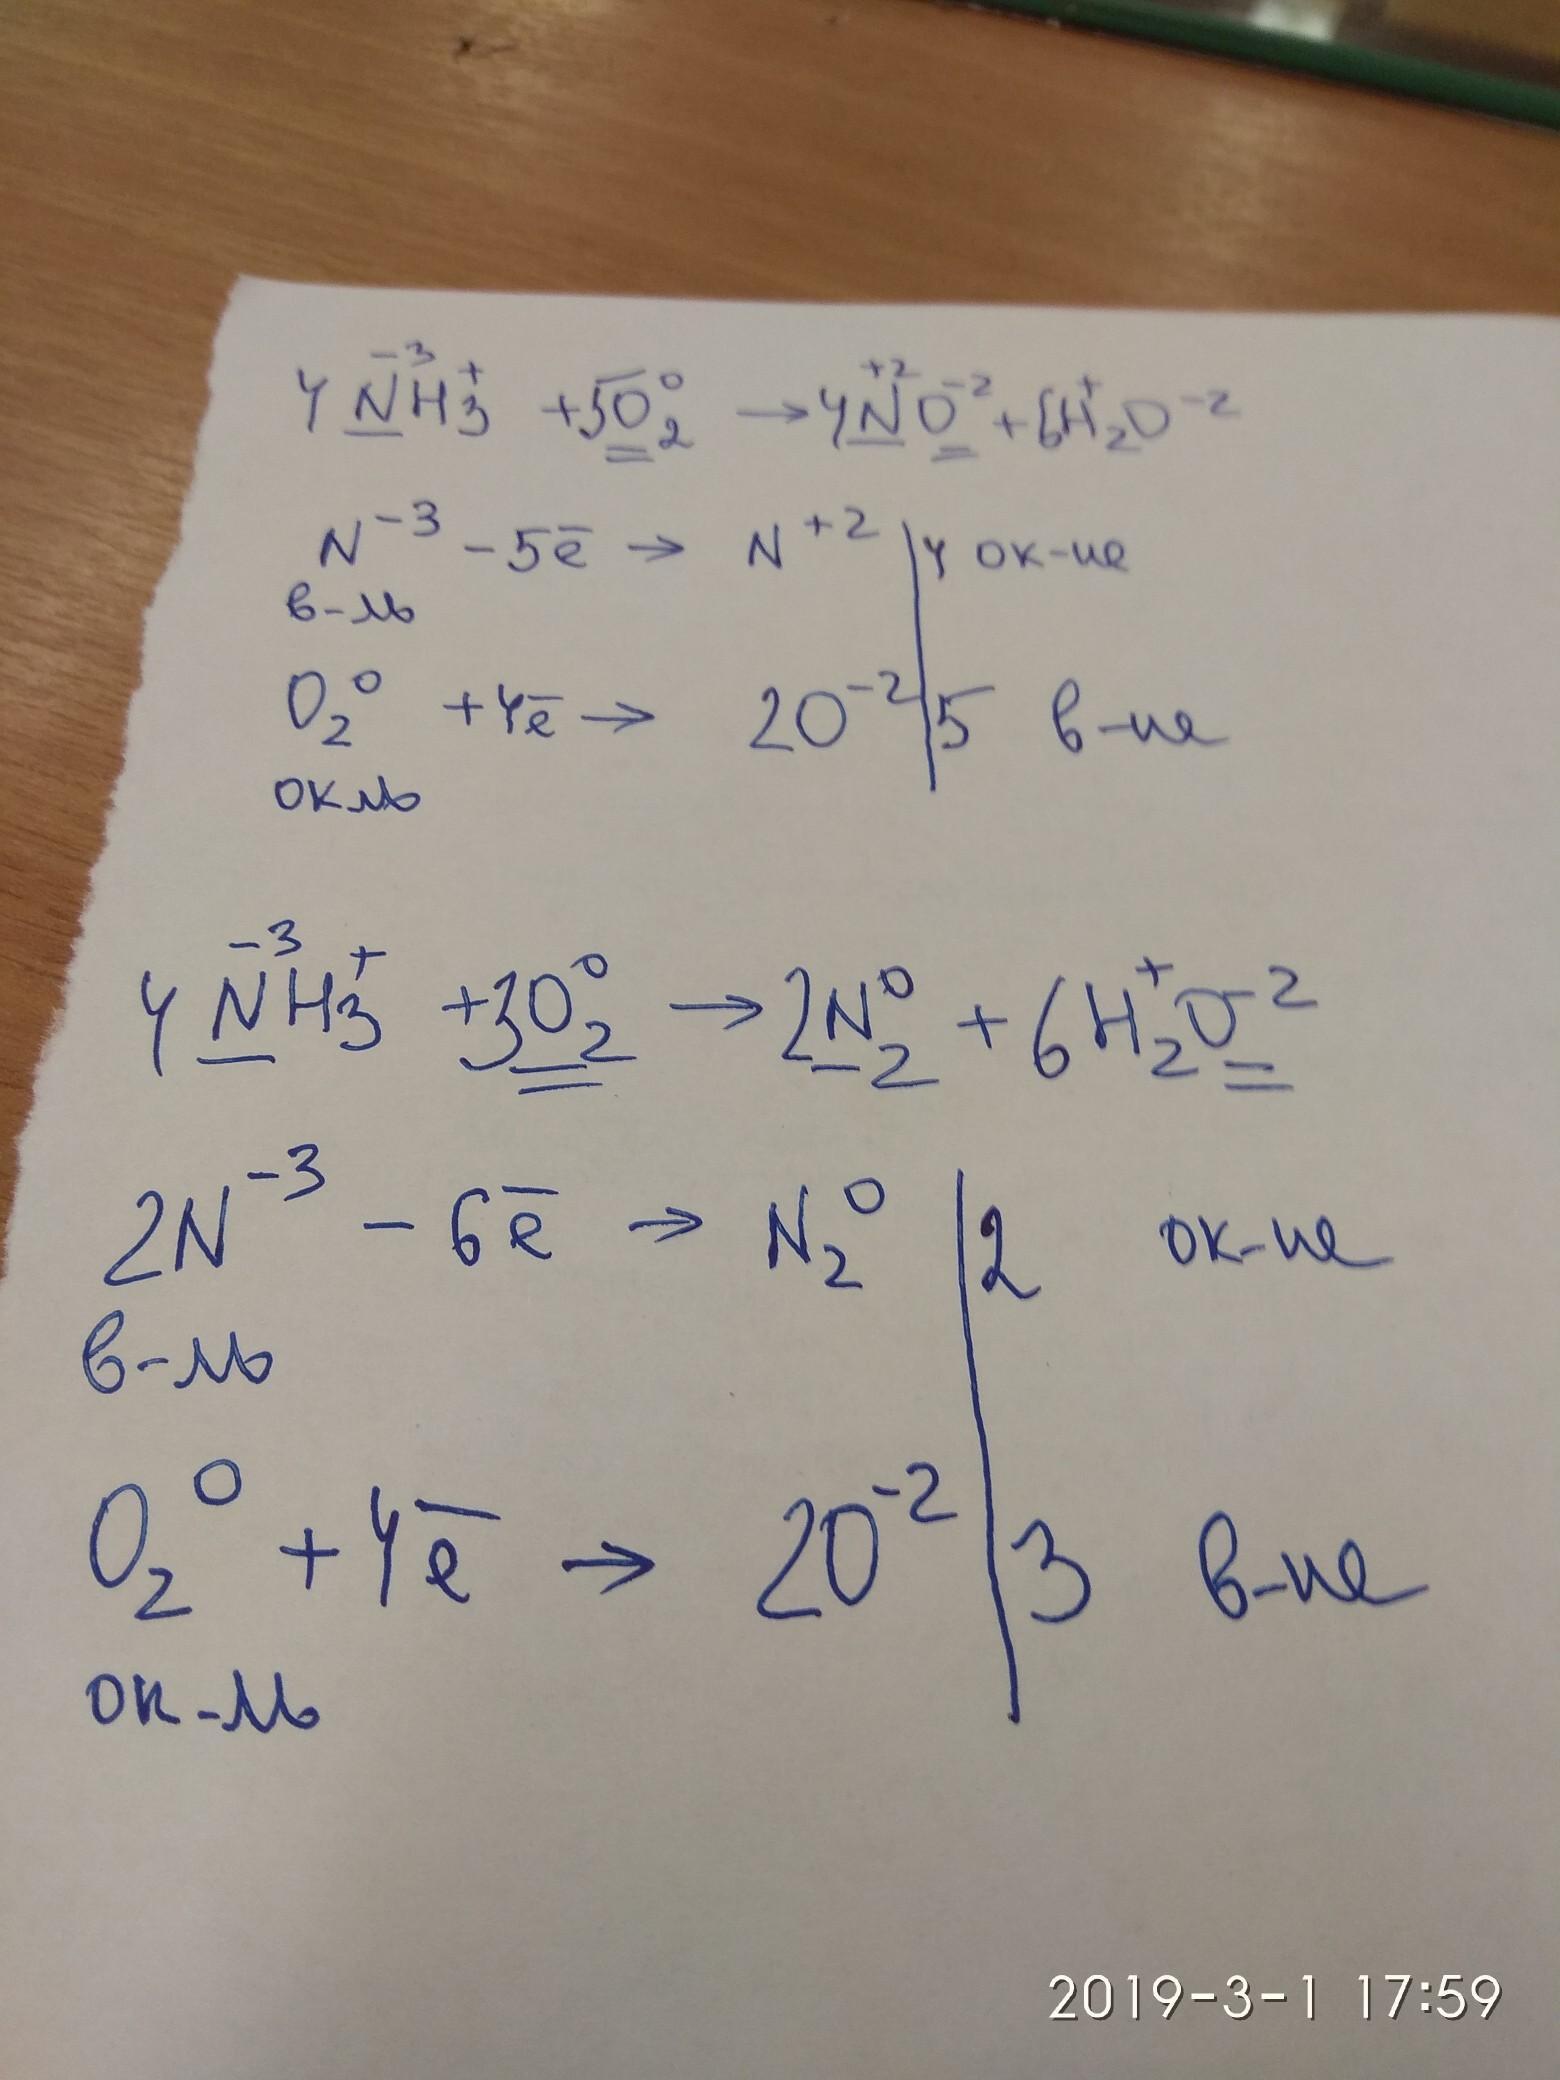 4N⁻³H₃⁺ + 5O₂⁰ → 4N⁺²O⁻² + 6H₂⁺O⁻²
N⁻³ - 5e̅ → N⁺² | 4 ок-ие
в-ль
O₂⁰ + 4e̅ → 2O⁻² | 5 в-ие
окль
4N⁻³H₃⁺ + 3O₂⁰ → 2N₂⁰ + 6H₂⁺O⁻²
2N⁻³ - 6e̅ → N₂⁰ | 2 ок-ие
в-ль
O₂⁰ + 4e̅ → 2O⁻² | 3 в-ие
ок-ль
2019-3-1 17:59